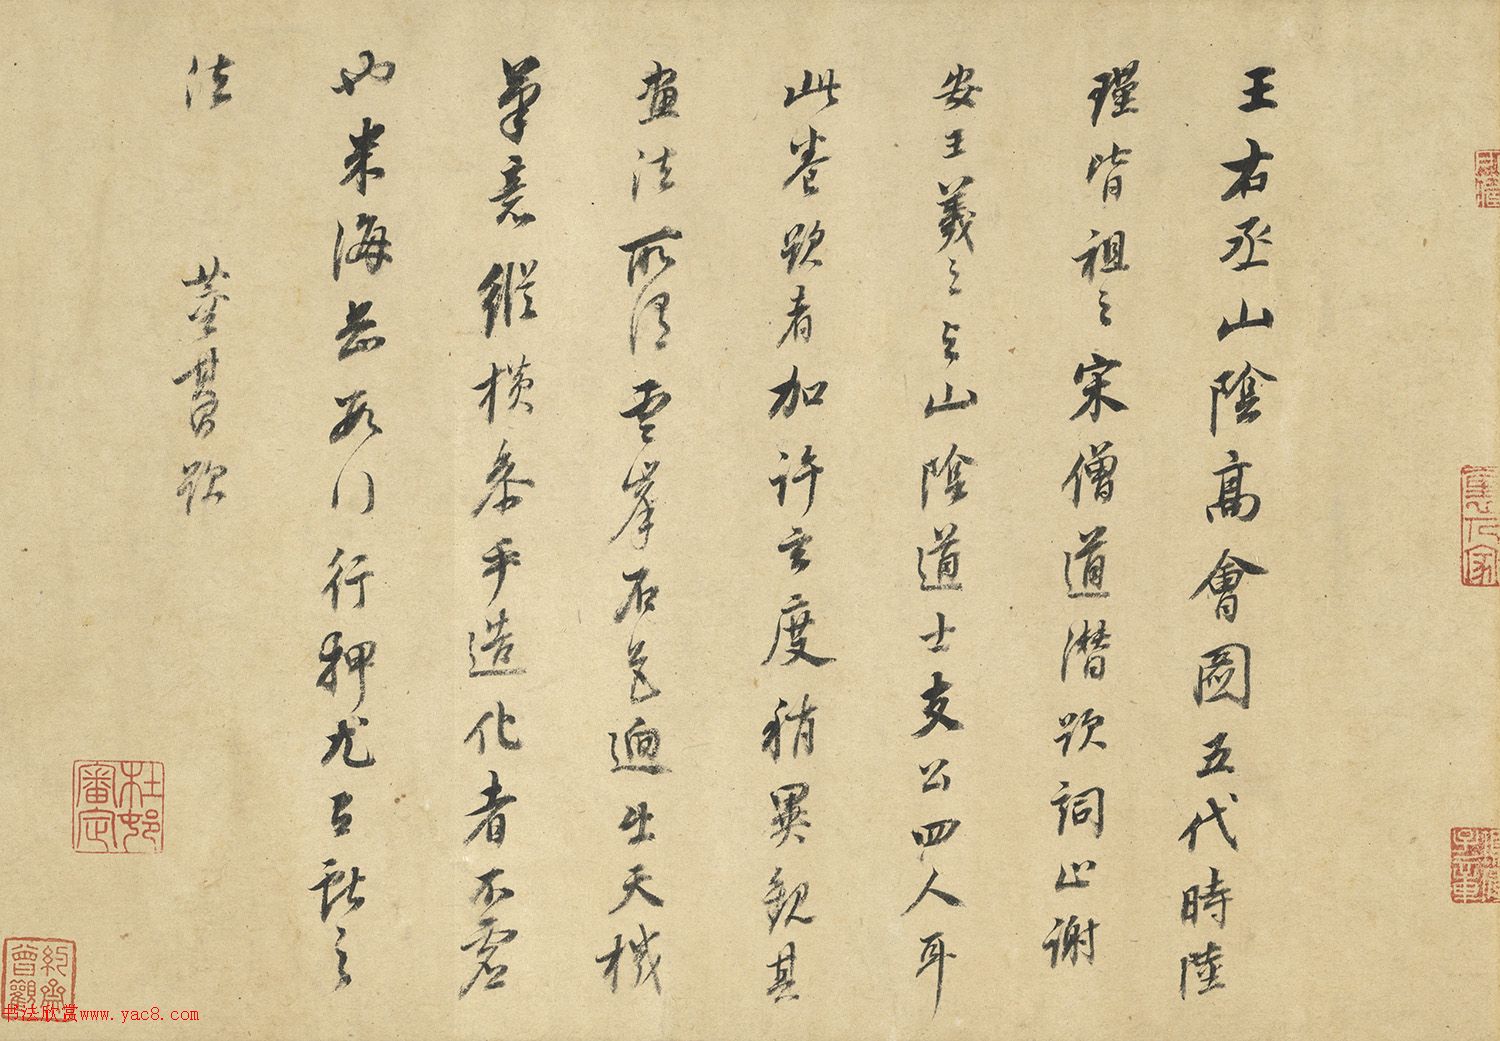 王右丞山陰高會圖五代時陸
瑾皆祖之宋僧道潛跋詞止謝
安王羲之與山陰道士支公四人耳
此卷跋者加許玄度稍異觀其
畫法所謂雲峯石色迥出天機
筆意縱橫參乎造化者不虛
也米海岳數行
法
董其昌跋
杜邨審定
約齋曾觀
书法欣赏www.yac8.com